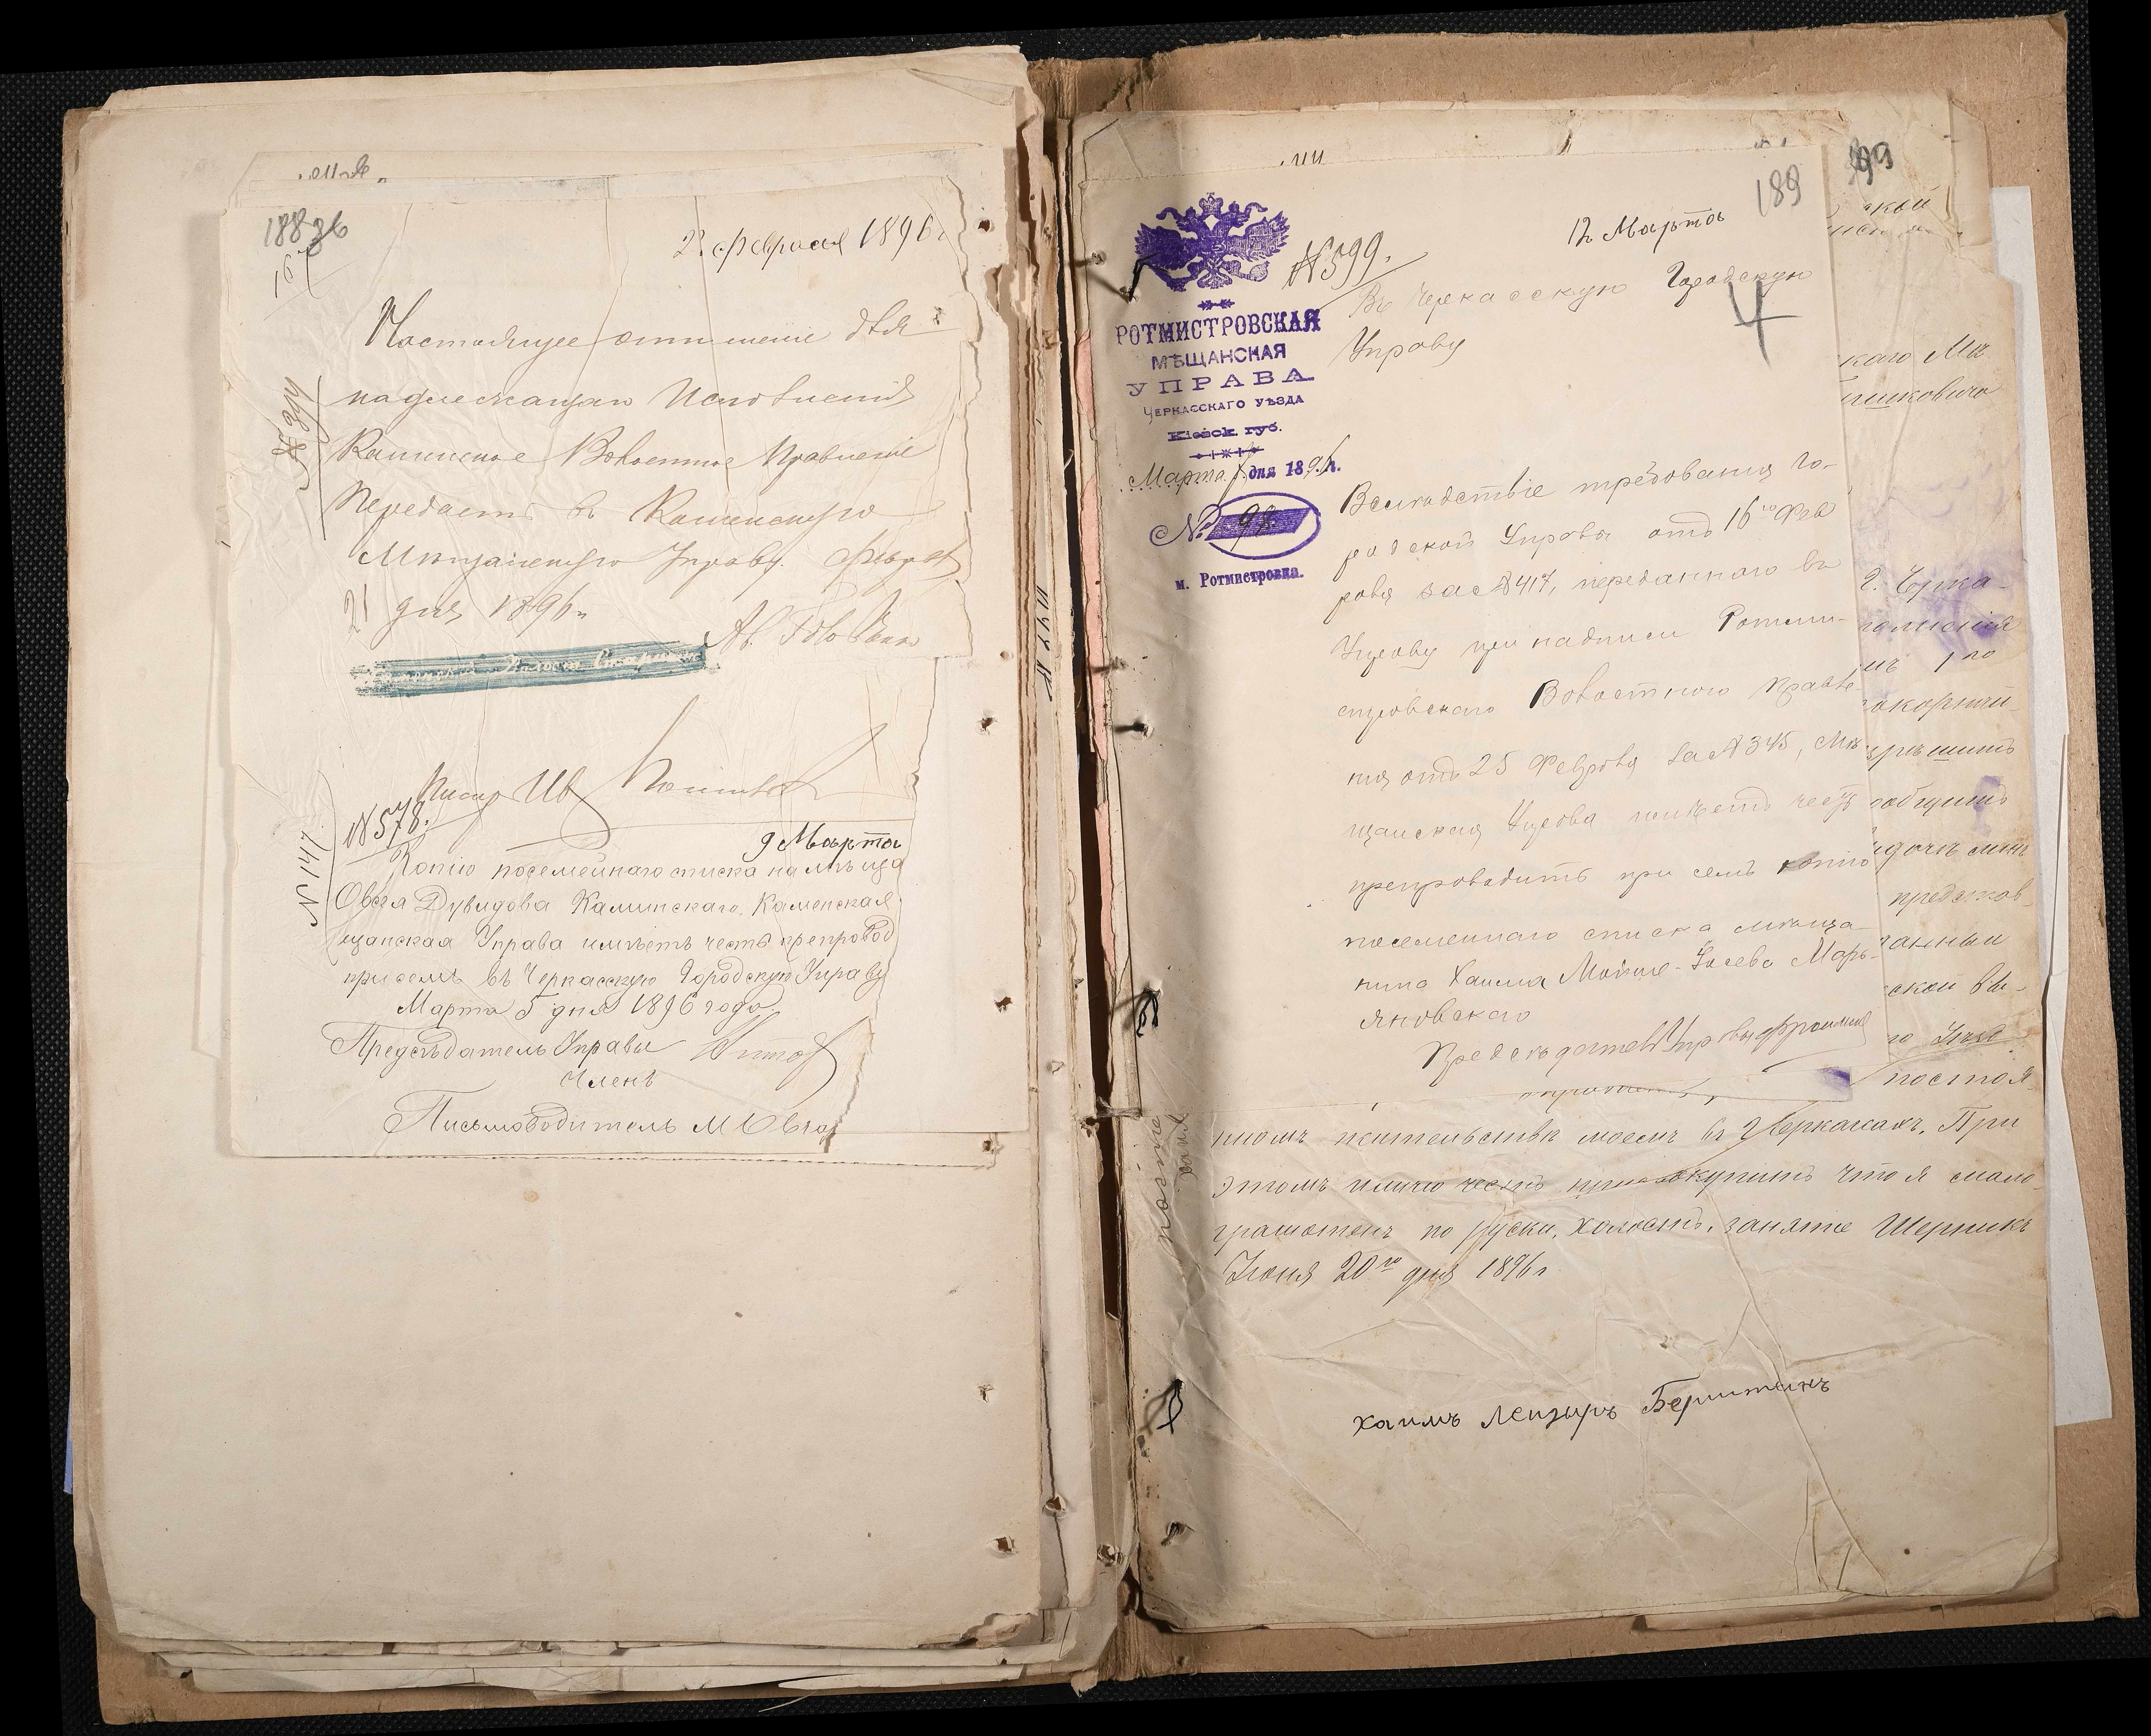 188 об
23 февраля 1896 г
Настоящее отношение для
надлежащаго Исполненія
Каменское Волостное Правленіе
Передаетъ въ Каменскую
Мѣщанскую Управу. Февраля
21 дня 1896 г.
Волости Старшина
Писарь Ив
№ 578.
9 Марта
№ 147.
Копію посемейнаго списка на мѣща
Овсея Дувидова Калинскаго, Каменская
щанская Управа имѣетъ честь препровод
при семъ въ Черкасскую Городскую Управу
Марта 5 дня 1896 года
Предсѣдатель Управы
Членъ
Письмоводитель М
189
99
12 Марта
№599.
РОТМИСТРОВСКАЯ
МѢЩАНСКАЯ
УПРАВА
ЧЕРКАССКАГО УѢЗДА
Кіевск. губ.
Марта дня 1896 г.
№ 98
м. Ротмистровка.
Въ Черкасскую Городскую
Управу
4
Вслѣдствіе требованія Го-
родской Управы отъ 16го Фев
раля за №417, переданнаго въ
Управу при надписи Ротми-
стровскаго Волостного Правле-
нія отъ 25 Февраля за №345, Мѣ
щанская Управа имѣетъ честь
препроводить при семъ копію
посемейнаго списка мѣща-
нина Хаима Мойше-Іосева Марь-
яновскаго
Предсѣдатель Управы
скый
каго Мѣ
шковича
г. Черка-
1го
покорнѣй
сообщить
представ-
скои вы-
постоя-
нномъ жительствѣ моемъ въ г Черкасахъ. При
этомъ имѣю честь присовокупить что я мало-
грамотенъ по руски, холостъ, занятіе Шерникъ
Іюня 20го дня 1896 г
хаимъ Лейзыръ Берштейнъ